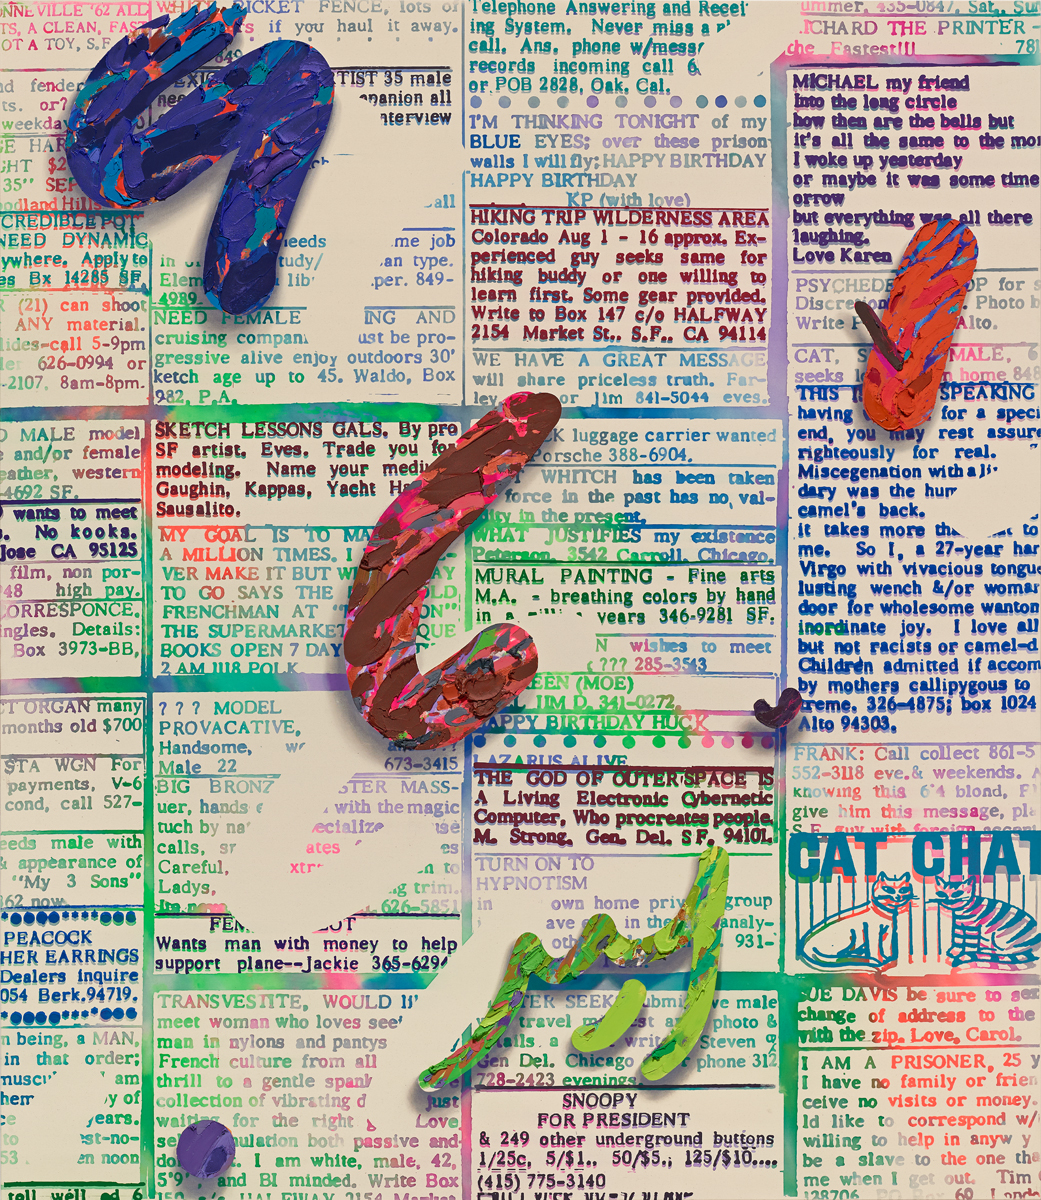 NNEVILLE '62 ALL
TS, A CLEAN, FAST
OT A TOY, S.F.
fender
ts. or?
weekday
GHT $2
35" SEP
odland Hills
CREDIBLE POT
NEED DYNAMIC
ywhere. Apply to
es Bx 14285 SF
(21) can shoot
ANY material.
lides-call 5-9pm
626-0994 or
-2107, 8am-8pm.
MALE model
and/or female
eather, western
-4692 SF.
wants to meet
No kooks.
Jose CA 95125
film, non por-
48 high pay.
ORRESPONCE,
ingles. Details:
Box 3973-BB,
CT ORGAN many
months old $700
STA WGN For
payments, V-6
cond, call 527-
eeds male with
& appearance of
"My 3 Sons"
PEACOCK
HER EARRINGS
Dealers inquire
054 Berk. 94719.
n being, a MAN,
in that order;
am
y of
years.
st-no-
53 en noon
tell well ad 6
WHITE PICKET FENCE, lots of
if you haul it away.
849
TIST 35 male
panion all
nterview
needs me job
in study/ an type.
Elem lib' per. 849-
4989
NEED FEMALE ING AND
cruising compan ust be pro-
gressive alive enjoy outdoors 30'
ketch age up to 45. Waldo, Box
982, P.A.
SKETCH LESSONS GALS. By pro
SF artist. Eves. Trade you for
modeling. Name your medi
Gaughin, Kappas, Yacht H
Sausalito.
MY GOAL IS TO MA
A MILLION TIMES. I
VER MAKE IT BUT W AY
TO GO SAYS THE OLD,
FRENCHMAN AT ON"
THE SUPERMARKET QUE
BOOKS OPEN 7 DAY
2 AM 1118 POLK
? ? ? MODEL
PROVACATIVE,
Handsome,
Male 22 673-3415
BIG BRONZ STER MASS-
uer, hands with the magic
tuch by na ecialize use
calls, ates es
Careful, xtr n to
Ladys, g trim.
626-5851
Wants man with money to help
support plane--Jackie 365-6294
TRANSVESTITE, WOULD LI
meet woman who loves see
man in nylons and pantys
French culture from all
thrill to a gentle spank
collection of vibrating d just
waiting for the right Love
ulation both passive and
do I am white, male, 42,
5'9" and BI minded. Write Box
HALFWAY 2154 Market
Telephone Answering and Recei
ing System. Never miss a p
call. Ans. phone w/mess
records incoming call 6
or POB 2828, Oak. Cal.
I'M THINKING TONIGHT of my
BLUE EYES; over these prison
walls I will fly; HAPPY BIRTHDAY
HAPPY BIRTHDAY
KP (with love)
HIKING TRIP WILDERNESS AREA
Colorado Aug 1 - 16 approx. Ex-
perienced guy seeks same for
hiking buddy or one willing to
learn first. Some gear provided.
Write to Box 147 c/o HALFWAY
2154 Market St., S.F., CA 94114
WE HAVE A GREAT MESSAGE
will share priceless truth. Far-
ley or Jim 841-5044 eves.
K luggage carrier wanted
Porsche 388-6904.
WHITCH has been taken
force in the past has no val-
idity in the present.
WHAT JUSTIFIES my existence
Peterson, 3542 Carroll, Chicago.
MURAL PAINTING - Fine arts
M.A. - breathing colors by hand
in a years 346-9281 SF.
N wishes to meet
??? 285-3543
EEN (MOE)
JIM D. 341-0272
HAPPY BIRTHDAY HUCK
LAZARUS ALIVE
THE GOD OF OUTER SPACE IS
A Living Electronic Cybernetic
Computer, Who procreates people.
M. Strong, Gen. Del, SF, 94101.
TURN ON TO
HYPNOTISM
in own home priv group
ave in the analy-
oth 931-
TER SEEK submi ve male
travel st photo &
alls. a writ Steven
Gen Del. Chicago phone 312
728-2423 evenings.
SNOOPY
FOR PRESIDENT
& 249 other underground buttons
1/25c, 5/$1., 50/$5.; 125/$10....
(415) 775-3140
ummer, 435-0847. Sat., Sun
RICHARD THE PRINTER -
the Fastest!!! 781
MICHAEL my friend
Into the long circle
how then are the bells but
it's all the same to the mor
I woke up yesterday
or maybe it was some time
orrow
but everything was all there
laughing.
Love Karen
PSYCHEDE OP for s
Discre Photo b
Write P Alto.
CAT, S MALE, 6
seeks l home 848
THIS I SPEAKING
having for a speci
end, you may rest assure
righteously for real.
Miscegenation with a li
dary was the hum
camel's back.
it takes more th t to
me. So I, a 27-year har
Virgo with vivacious tongue
lusting wench &/or woman
door for wholesome wanton
inordinate joy. I love all
but not racists or camel-d
Children admitted if accom
by mothers callipygous to
treme. 326-4875; box 1024
Alto 94303.
FRANK: Call collect 861-5
552-3118 eve. & weekends. A
knowing this 6'4 blond, F
give him this message, ple
S.F. guy with foreign accent
CAT CHAT
SUE DAVIS be sure to sen
change of address to the
with the zip. Love, Carol.
I AM A PRISONER, 25 y
I have no family or frien
ceive no visits or money.
ld like to correspond w/
willing to help in anyw y
be a slave to the one tha
me when I get out. Tim
128706